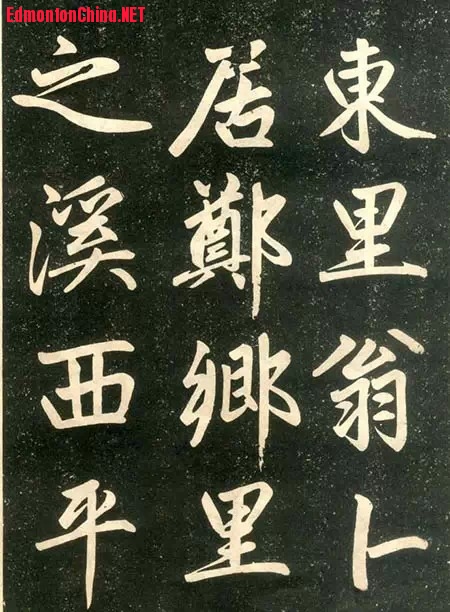 EdmontonChina.NET
東里翁卜
居鄭鄉里
之溪西平